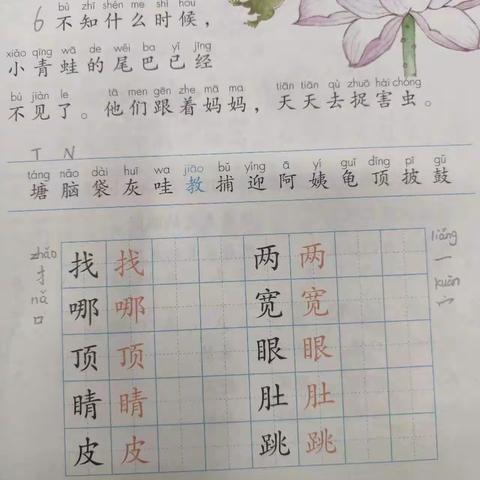 bù zhī shén me shí hou
6 不知什么时候，
xiǎo qīng wā de wěi ba yǐ jīng
小青蛙的尾巴已经
bú jiàn le tā men gēn zhe mā ma tiān tiān qù zhuō hài chóng
不见了。他们跟着妈妈，天天去捉害虫。
T N
táng nǎo dài huī wa jiāo bǔ yíng ā yí guī dǐng pī gǔ
塘脑袋灰哇教捕迎阿姨龟顶披鼓
zhǎo 找找 两两 liǎng
扌 一
nǎ 哪哪 宽宽 kuān
口 宀
顶顶 眼眼
睛睛 肚肚
皮皮 跳跳